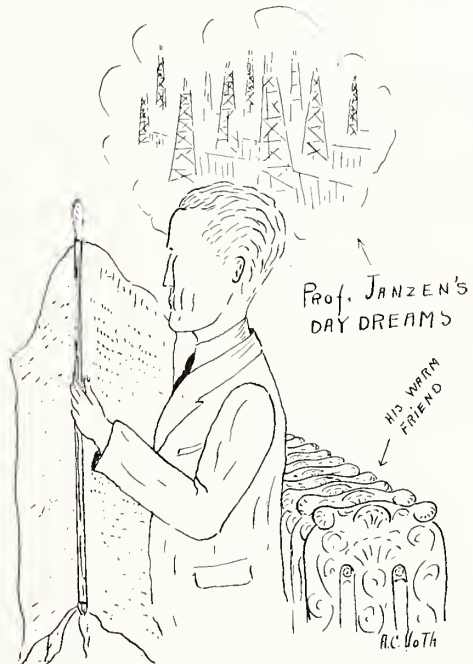 Prof. JANZEN'S
DAY DREAMS
HIS WARM
FRIEND
A.C. VOTH